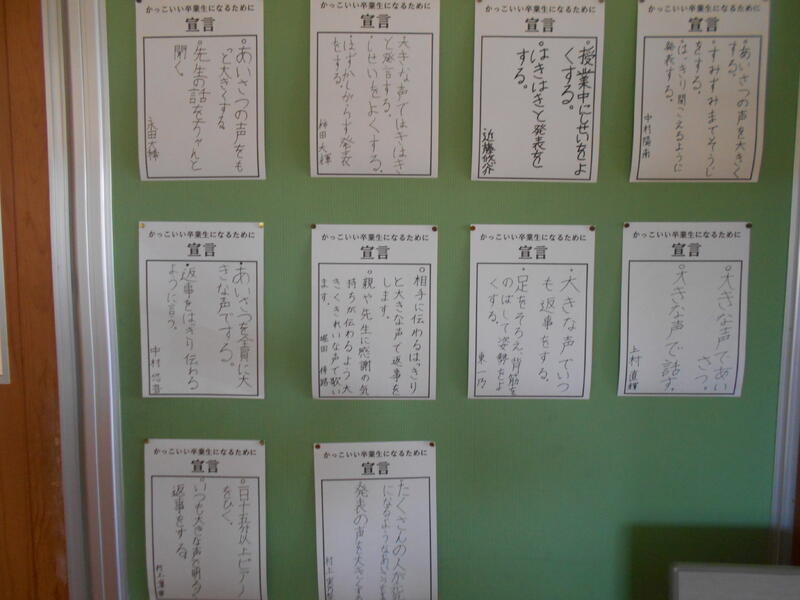 かっこいい卒業生になるために
宣言
・あいさつの声をも
っと大きくする
・先生の話をちゃんと
聞く。
かっこいい卒業生になるために
宣言
・大きな声ではきはき
と発言する。
・しせいをよくする。
・はずかしがらず発表
をする。
かっこいい卒業生になるために
宣言
・授業中にしせいをよ
くする。
・はきはきと発表を
する。
近藤悠介
かっこいい卒業生になるために
宣言
・あいさつの声を大きく
する。
・すみずみまでそうじ
をする。
・はっきり聞こえるように
発表する。
中村陽南
かっこいい卒業生になるために
宣言
・あいさつを全員に大
きな声でする。
・返事をはっきり伝わる
ように言う。
中村
かっこいい卒業生になるために
宣言
・相手に伝わるはっきり
と大きな声で返事を
します。
・親や先生に感謝の気
持ちが伝わるよう大
きくきれいな声で歌い
ます。
堀田
かっこいい卒業生になるために
宣言
・大きな声でいつ
も返事をする。
・足をそろえ、背筋を
のばして姿勢をよ
くする。
東一乃
かっこいい卒業生になるために
宣言
・大きな声であい
さつ。
・大きな声で話す。
上村直輝
かっこいい卒業生になるために
宣言
・一日十五分以上ピアノ
をひく。
・いつも大きな声で明るい
返事をする。
村上
かっこいい卒業生になるために
宣言
たくさんの人が
になるようなあいさつをする
発表の声を大きくする
村上